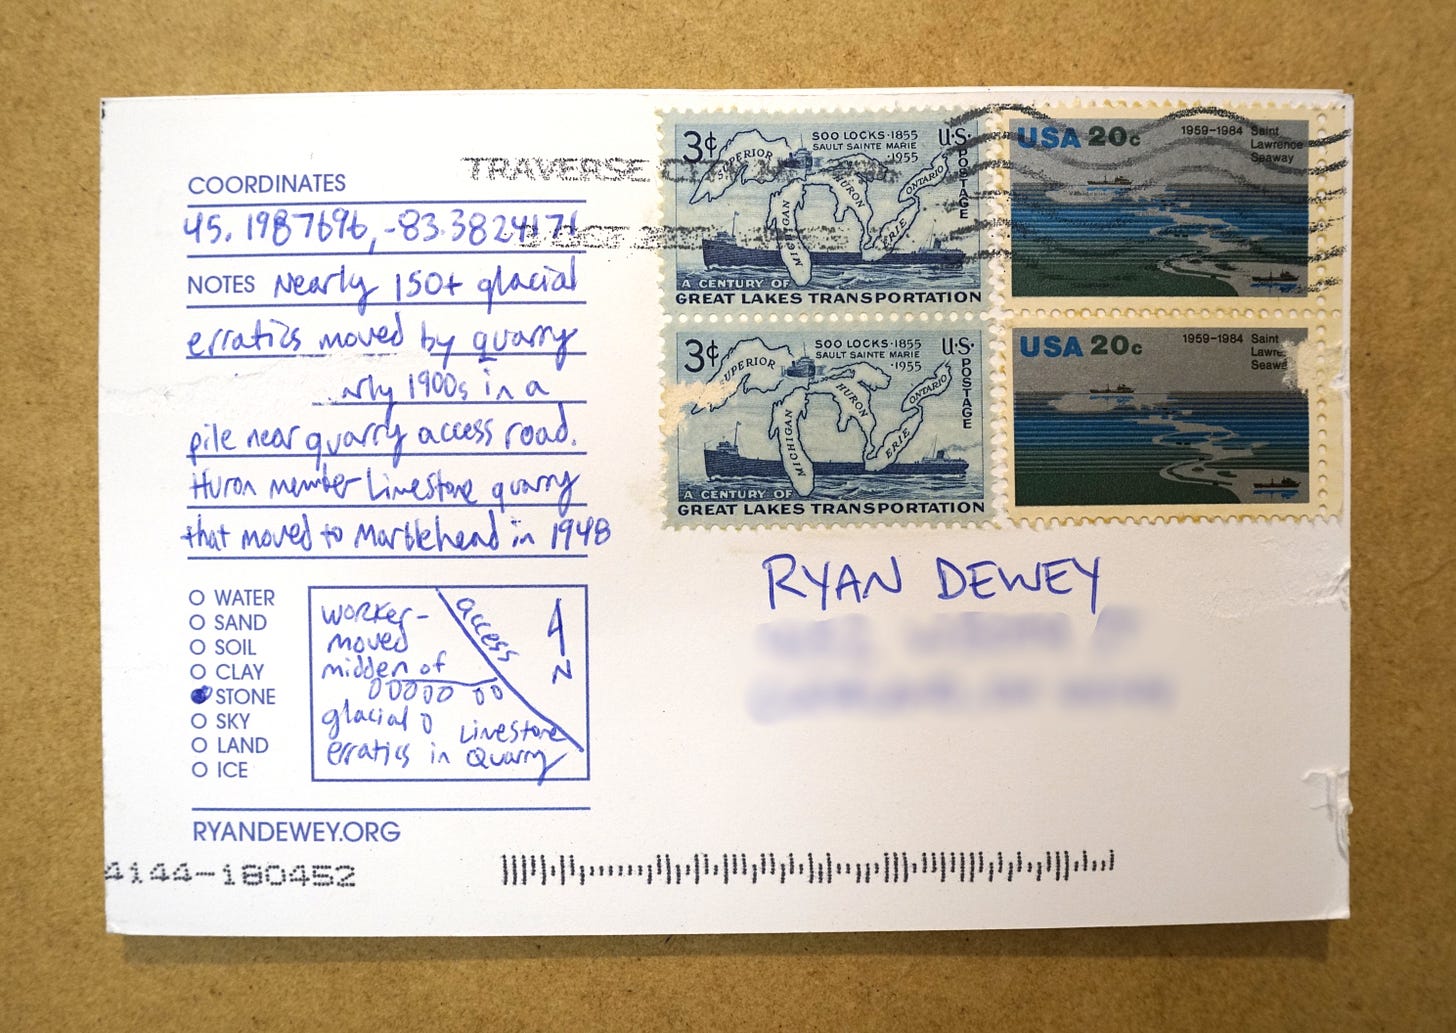 COORDINATES
45.1987696, -83.3824171
NOTES Nearly 150+ glacial
erratics moved by quarry
arly 1900s in a
pile near quarry access road.
Huron member Limestone quarry
that moved to Marblehead in 1948
WATER
SAND
SOIL
CLAY
STONE
SKY
LAND
ICE
worker-
moved
midden of
glacial
erratics in
access
N
Limestone
Quarry
RYANDEWEY.ORG
4144-180452
TRAVERSE CITY
3¢
SOO LOCKS·1855
SAULT SAINTE MARIE
·1955
U·S·
POSTAGE
SUPERIOR
MICHIGAN
HURON
ERIE
ONTARIO
A CENTURY OF
GREAT LAKES TRANSPORTATION
USA 20c
1959-1984 Saint
Lawrence
Seaway
3¢
SOO LOCKS·1855
SAULT SAINTE MARIE
·1955
U·S·
POSTAGE
SUPERIOR
MICHIGAN
HURON
ERIE
ONTARIO
A CENTURY OF
GREAT LAKES TRANSPORTATION
USA 20c
1959-1984 Saint
Lawre
Seawa
RYAN DEWEY